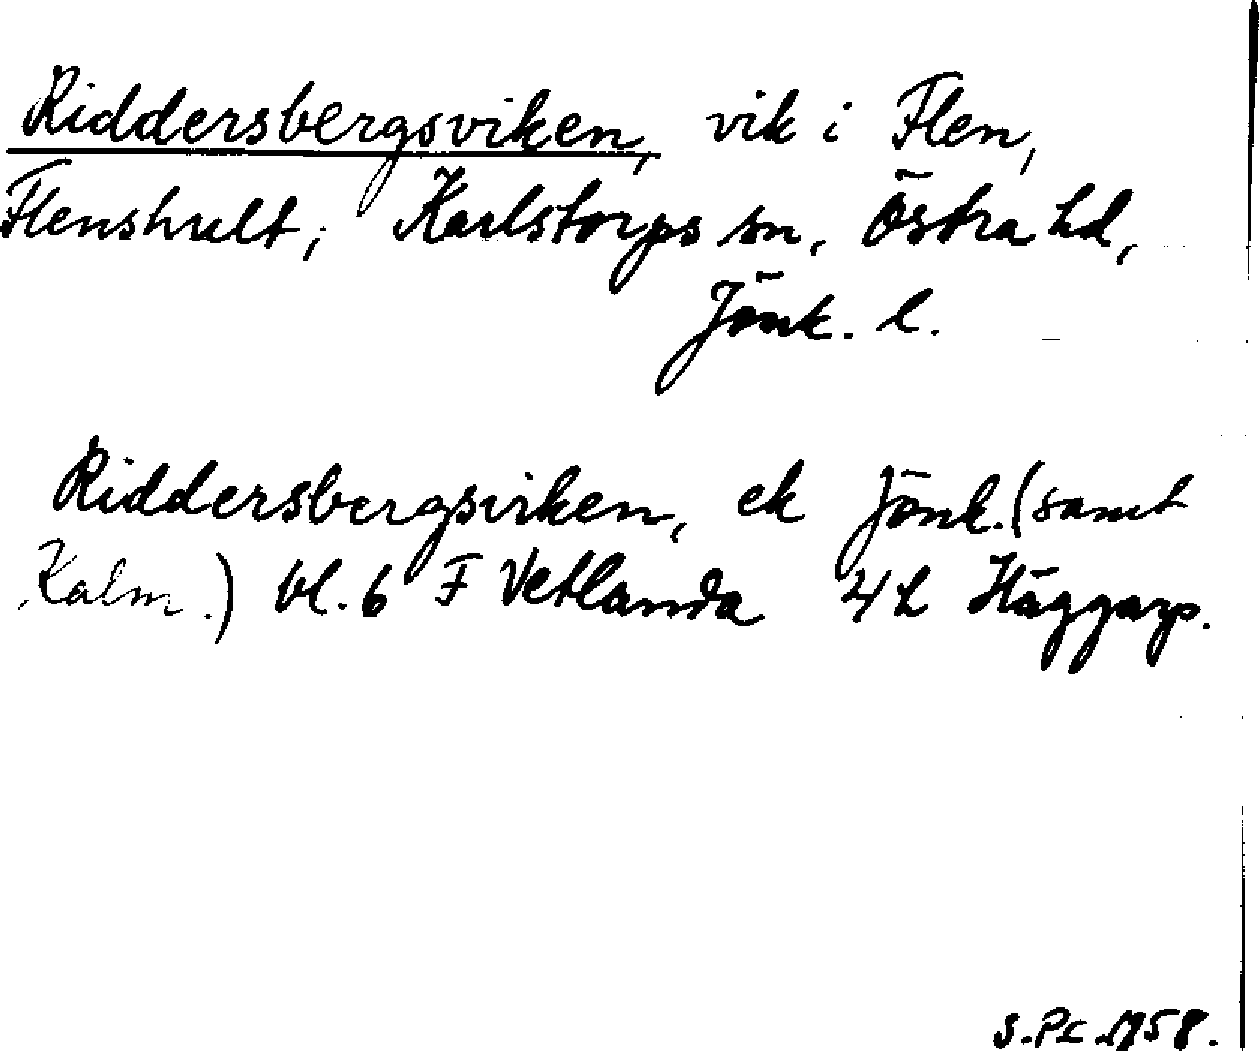 Riddersbergsviken, vik i Flen,
Flenshult, Karlstorps sn, Östra hd,
Jönk. l.
Riddersbergsviken, ek Jönk. (samt
Kalm.) bl. 6 F Vetlanda 4h Häggarp.
S.Pc.1958.